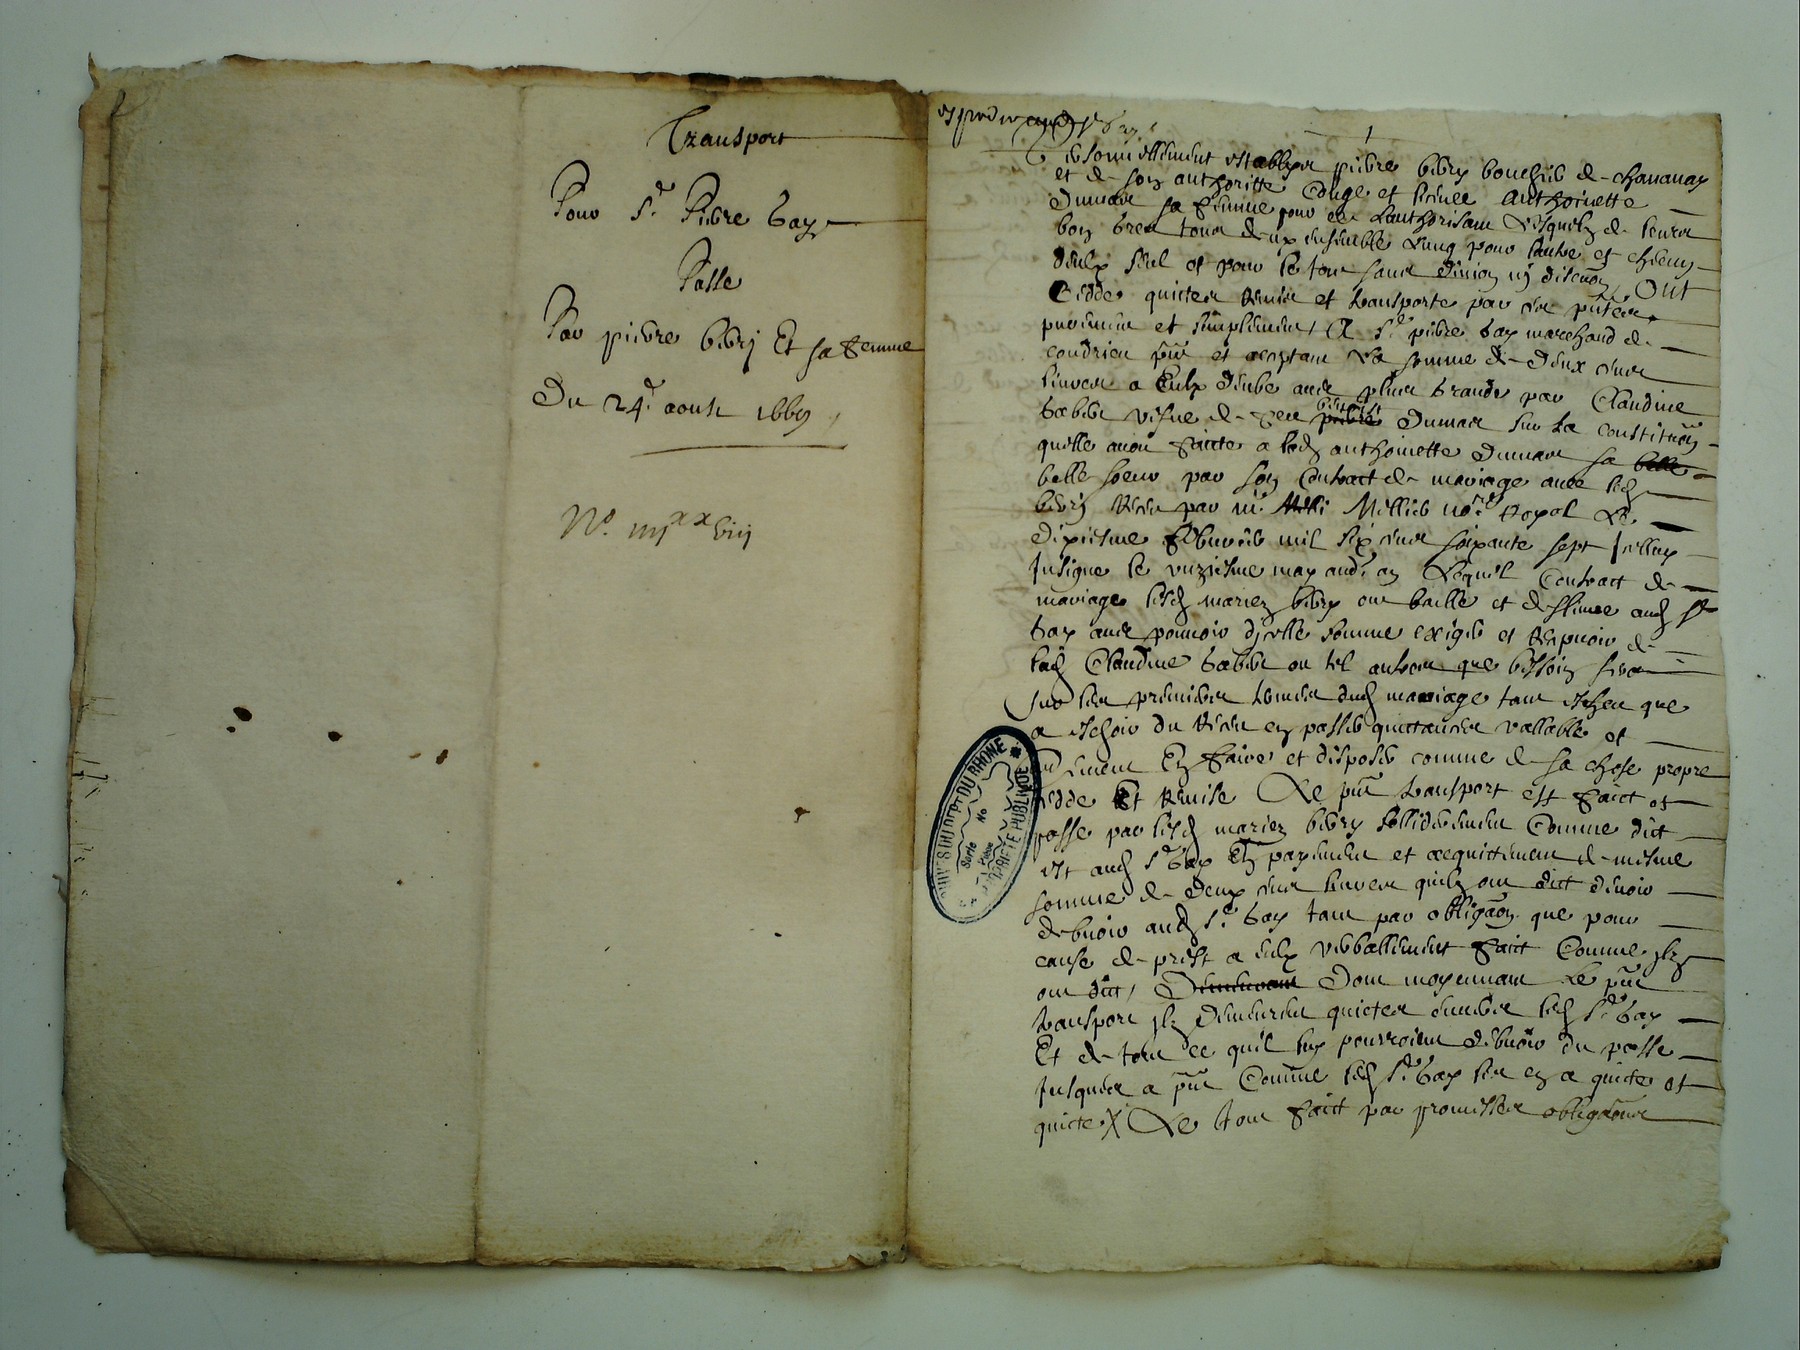 Transport
Pour Sr Pierre Gay
Passe
Par pierre bery Et sa femme
Du 24e aoust 1669
No iiijxx viij
1
establys pierre bery boucher de chavanay
et de son authoritte Conge et licence Anthoinette
Dumas sa femme pour ce lauthorisant Lesquelz de leurs
bon gres tous deux ensemble Lung pour lautre et chacung
deulx seul et pour le tout sans division ny discuon Ont
Cedde quicte remis et transporte par ces putes
purement et simplement A Sr pierre Gay marchand de
condrieu put et acceptant La somme de deux cens
livres a Eulx deube avec plus grande par Claudine
vefve de feu pierre Dumas sur La constituon
quelle avoit faicte a lad anthoinette Dumas sa belle
belle soeur par son Contract de mariage avec led
bery receu par me Milli Millier nore royal Le
dixiesme febvrier mil six cens soixante sept
Insigne le unziesme may aud an Lequel Contract de
mariage lesd mariez bery ont baille et deslivre aud Sr
Gay avec pouvoir dicelle somme exiger et recepvoir de
lad Claudine ou tel autres que besoing sera
sur les premiers termes dud mariage tant escheu que
a eschoir du receu en passer quittances vallable et
En faire et disposer comme de sa chose propre
cedde Et remise Le put transport est faict et
passe par lesd mariez bery sollidairement Comme dict
est aud Sr Gay En payement et acquittement de mesme
somme de deux cens livres quilz ont dict devoir
debvoir aud Sr Gay tant par obligaon que pour
cause de prest a eulx verballement faict Comme ilz
ont dict Dont moyennant Le put
transport ilz demeurent quictes envers led Sr Gay
Et de tout ce quil luy pourroient debvoir du passe
Jusques a put Comme led Sr Gay les en a quicte et
quicte X Le tout faict par promesses obligaons
ARCHIVES DU DEPT DU RHONE
PROPRIETE PUBLIQUE
Serie
No
Piece